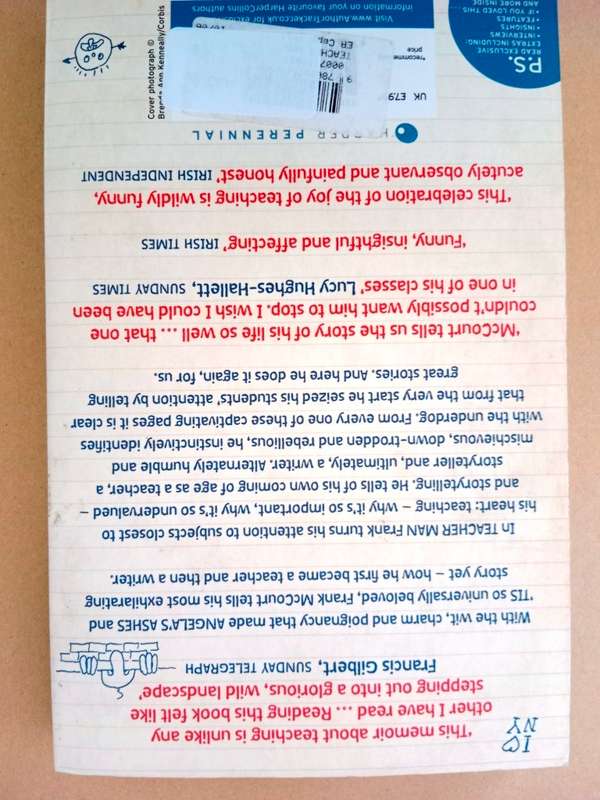 I ♡
NY
'This memoir about teaching is unlike any
other I have read ... Reading this book felt like
stepping out into a glorious, wild landscape'
Francis Gilbert, SUNDAY TELEGRAPH
With the wit, charm and poignancy that made ANGELA'S ASHES and
'TIS so universally beloved, Frank McCourt tells his most exhilarating
story yet – how he first became a teacher and then a writer.
In TEACHER MAN Frank turns his attention to subjects closest to
his heart: teaching – why it's so important, why it's so undervalued –
and storytelling. He tells of his own coming of age as a teacher, a
storyteller and, ultimately, a writer. Alternately humble and
mischievous, down-trodden and rebellious, he instinctively identifies
with the underdog. From every one of these captivating pages it is clear
that from the very start he seized his students' attention by telling
great stories. And here he does it again, for us.
'McCourt tells us the story of his life so well ... that one
couldn't possibly want him to stop. I wish I could have been
in one of his classes' Lucy Hughes-Hallett, SUNDAY TIMES
'Funny, insightful and affecting' IRISH TIMES
'This celebration of the joy of teaching is wildly funny,
acutely observant and painfully honest' IRISH INDEPENDENT
HARPER PERENNIAL
P.S.
READ EXCLUSIVE
EXTRAS INCLUDING:
• INTERVIEWS
INSIGHTS
• FEATURES
• IF YOU LOVED THIS
AND MORE INSIDE
UK £7.9
*recomme
price
9 78
0007
TEACH
ER
Cover photograph ©
Brenda Ann Kenneally/Corbis
Visit www.AuthorTracker.co.uk for exclusive
information on your favourite HarperCollins authors